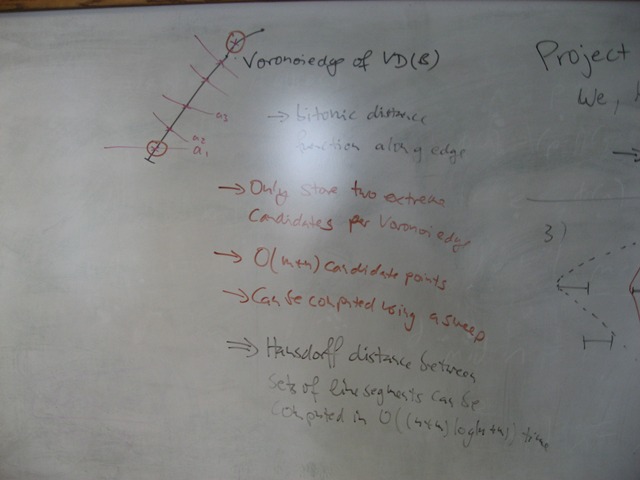 Voronoiedge of VD(B)
a3
a2
a1
→ bitonic distance
function along edge
→ Only store two extreme
candidates per Voronoiedge
→ O(m+n) candidate points
→ Can be computed using a sweep
⇒ Hausdorff distance between
sets of line segments can be
computed in O((n+m) log(n+m)) time
Project
We,
→
3)